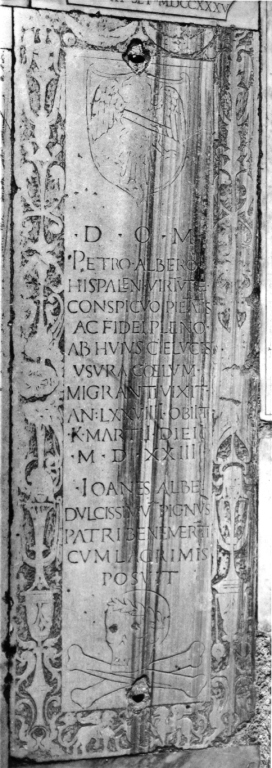 MDCCXXXV
· D · O · M
PETRO · ALBER
HISPALEN · VIRTVTE
CONSPICVO PIETATIS
AC FIDEI PLENO
AB HVIVS
VSVRA COELVM
MIGRANTI VIXIT
AN · LXVIII · OBIIT
K · MARTII DIE
· M · D · XXIII
· IOANES ALBE
DVLCISSIMV PIGNVS
PATRI BENEMERTI
CVM LACRIMIS
POSVIT